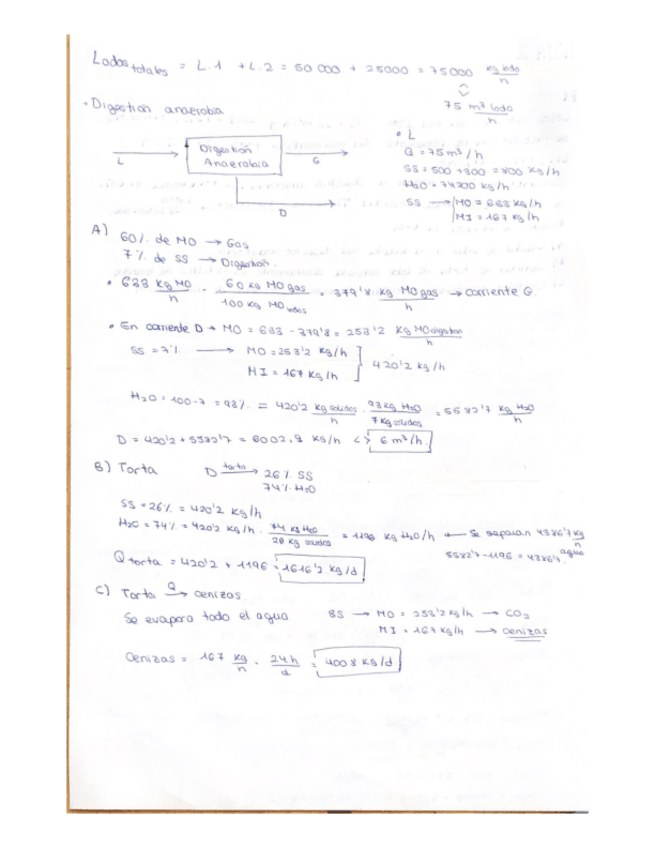 Lodos totales = L.1 + L.2 = 50 000 + 25000 = 75000 kg lodo/h
75 m³ lodo/h
• Digestión anaerobia
Digestión Anaerobia
L
G
D
• L
Q = 75 m³/h
SS = 500 + 300 = 800 kg/h
H₂O = 74200 kg/h
SS → MO = 633 kg/h
MI = 167 kg/h
A)
60% de MO → Gas
7% de SS → Digestión.
• 633 kg MO/h · 60 kg MO gas/100 kg MO lodos = 379'8 kg MO gas/h → corriente G.
• En corriente D → MO = 633 - 379'8 = 253'2 kg MO digestion/h
SS = 7% → MO = 253'2 kg/h
MI = 167 kg/h
420'2 kg/h
H₂O = 100-7 = 93% = 420'2 kg solidos/h · 93 kg H₂O/7 kg solidos = 5582'7 kg H₂O/h
D = 420'2 + 5582'7 = 6002,9 kg/h <> 6 m³/h.
B) Torta D torta→ 26% SS
74% H₂O
SS = 26% = 420'2 kg/h
H₂O = 74% = 420'2 kg/h · 74 kg H₂O/26 kg solidos = 1196 kg H₂O/h ← Se separan 4386'7 kg/h agua
5582'7 - 1196 = 4386'7.
Q torta = 420'2 + 1196 = 1616'2 kg/d
C) Torta Q→ cenizas.
Se evapora todo el agua
SS → MO = 253'2 kg/h → CO₂
MI = 167 kg/h → cenizas
Cenizas = 167 kg/h · 24h/d = 4008 kg/d